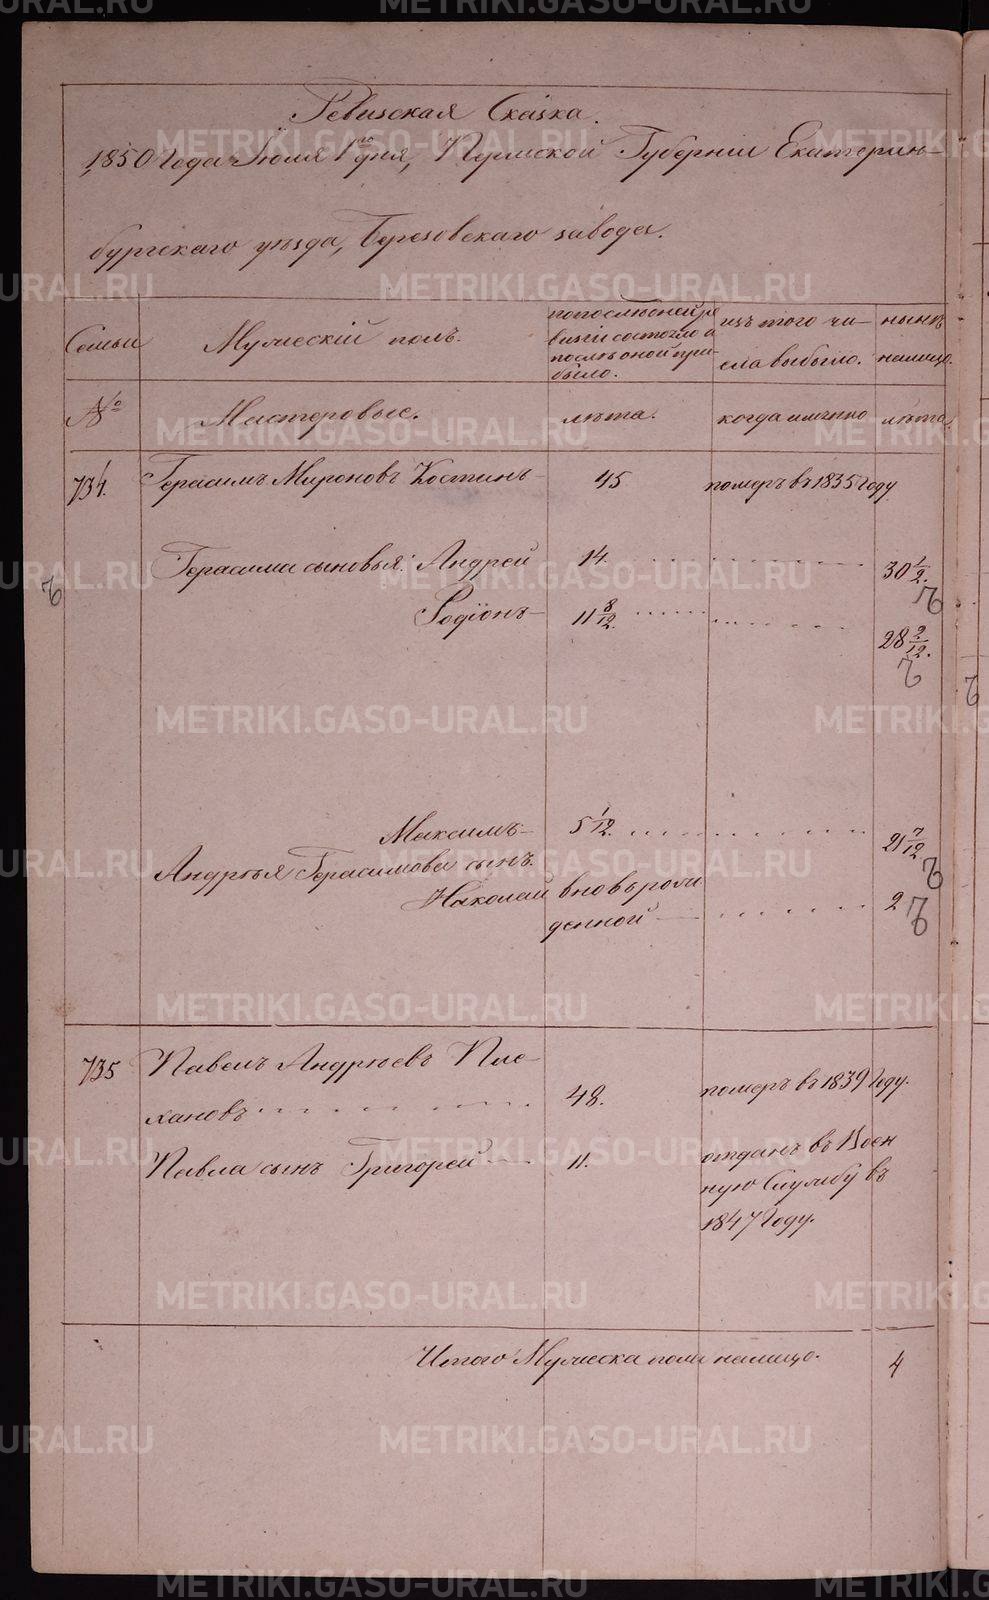 Ревизская Сказка.
1850 Года Июля 1го дня, Пермской Губернии Екатерин-
бургскаго уѣзда, Березовскаго завода.
Семьи
Мужескій полъ.
попослѣдней ре
визіи состояло и
послѣ оной при-
было.
изъ того чи-
сла выбыло.
нынѣ
налицо.
№
Мастеровые.
лѣта.
когда именно
лѣта.
734.
Герасимъ Мироновъ Костинъ
45
померъ въ 1835 Году
Герасима сыновья: Андрей
14.
30 1/2.
Родіонъ
11 8/12.
28 2/12.
Максимъ
5 1/12.
21 7/12.
Андрѣя Герасимова сынъ
Николай
вновь рож
денной
2
735
Павелъ Андрѣевъ Пле-
хановъ
48.
померъ въ 1839 Году.
Павла сынъ Григорей
11.
отданъ въ Воен
ную Службу въ
1847 Году.
Итого Мужеска пола налицо.
4
METRIKI.GASO-URAL.RU